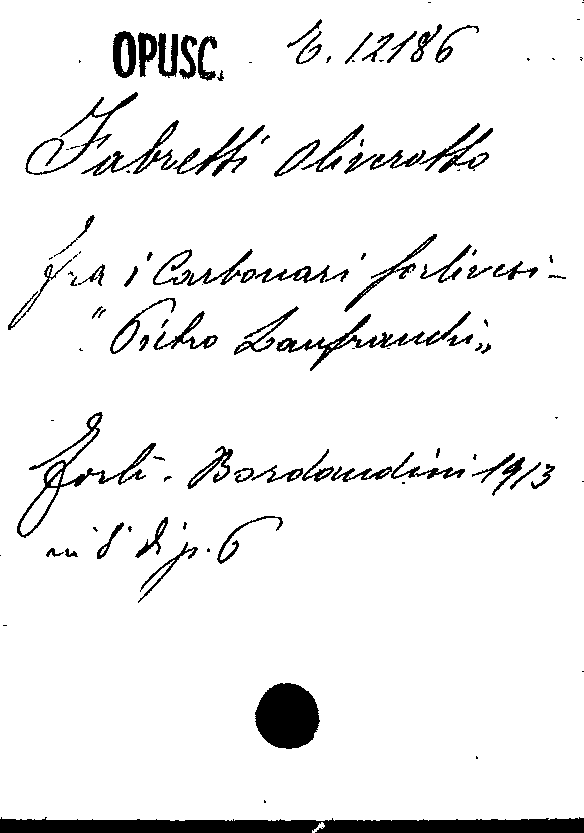 OPUSC. E. 12186
Fabretti Oliverotto
Fra i Carbonari forlivesi -
"Pietro Lanfranchi"
Forlì - Bordandini 1913
in 8° di p. 6